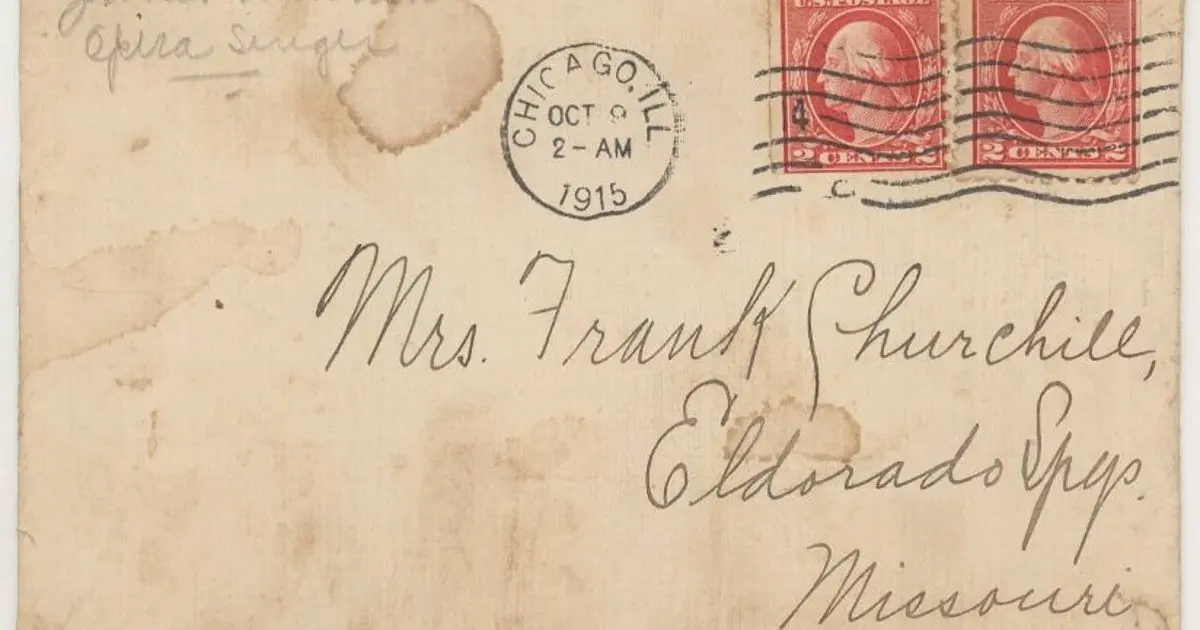 Opera Singer
U.S. POSTAGE
CHICAGO, ILL
OCT 9
2-AM
1915
4
2 CENTS 2
2 CENTS 2
C.
Mrs. Frank Churchill,
Eldorado Spgs.
Missouri